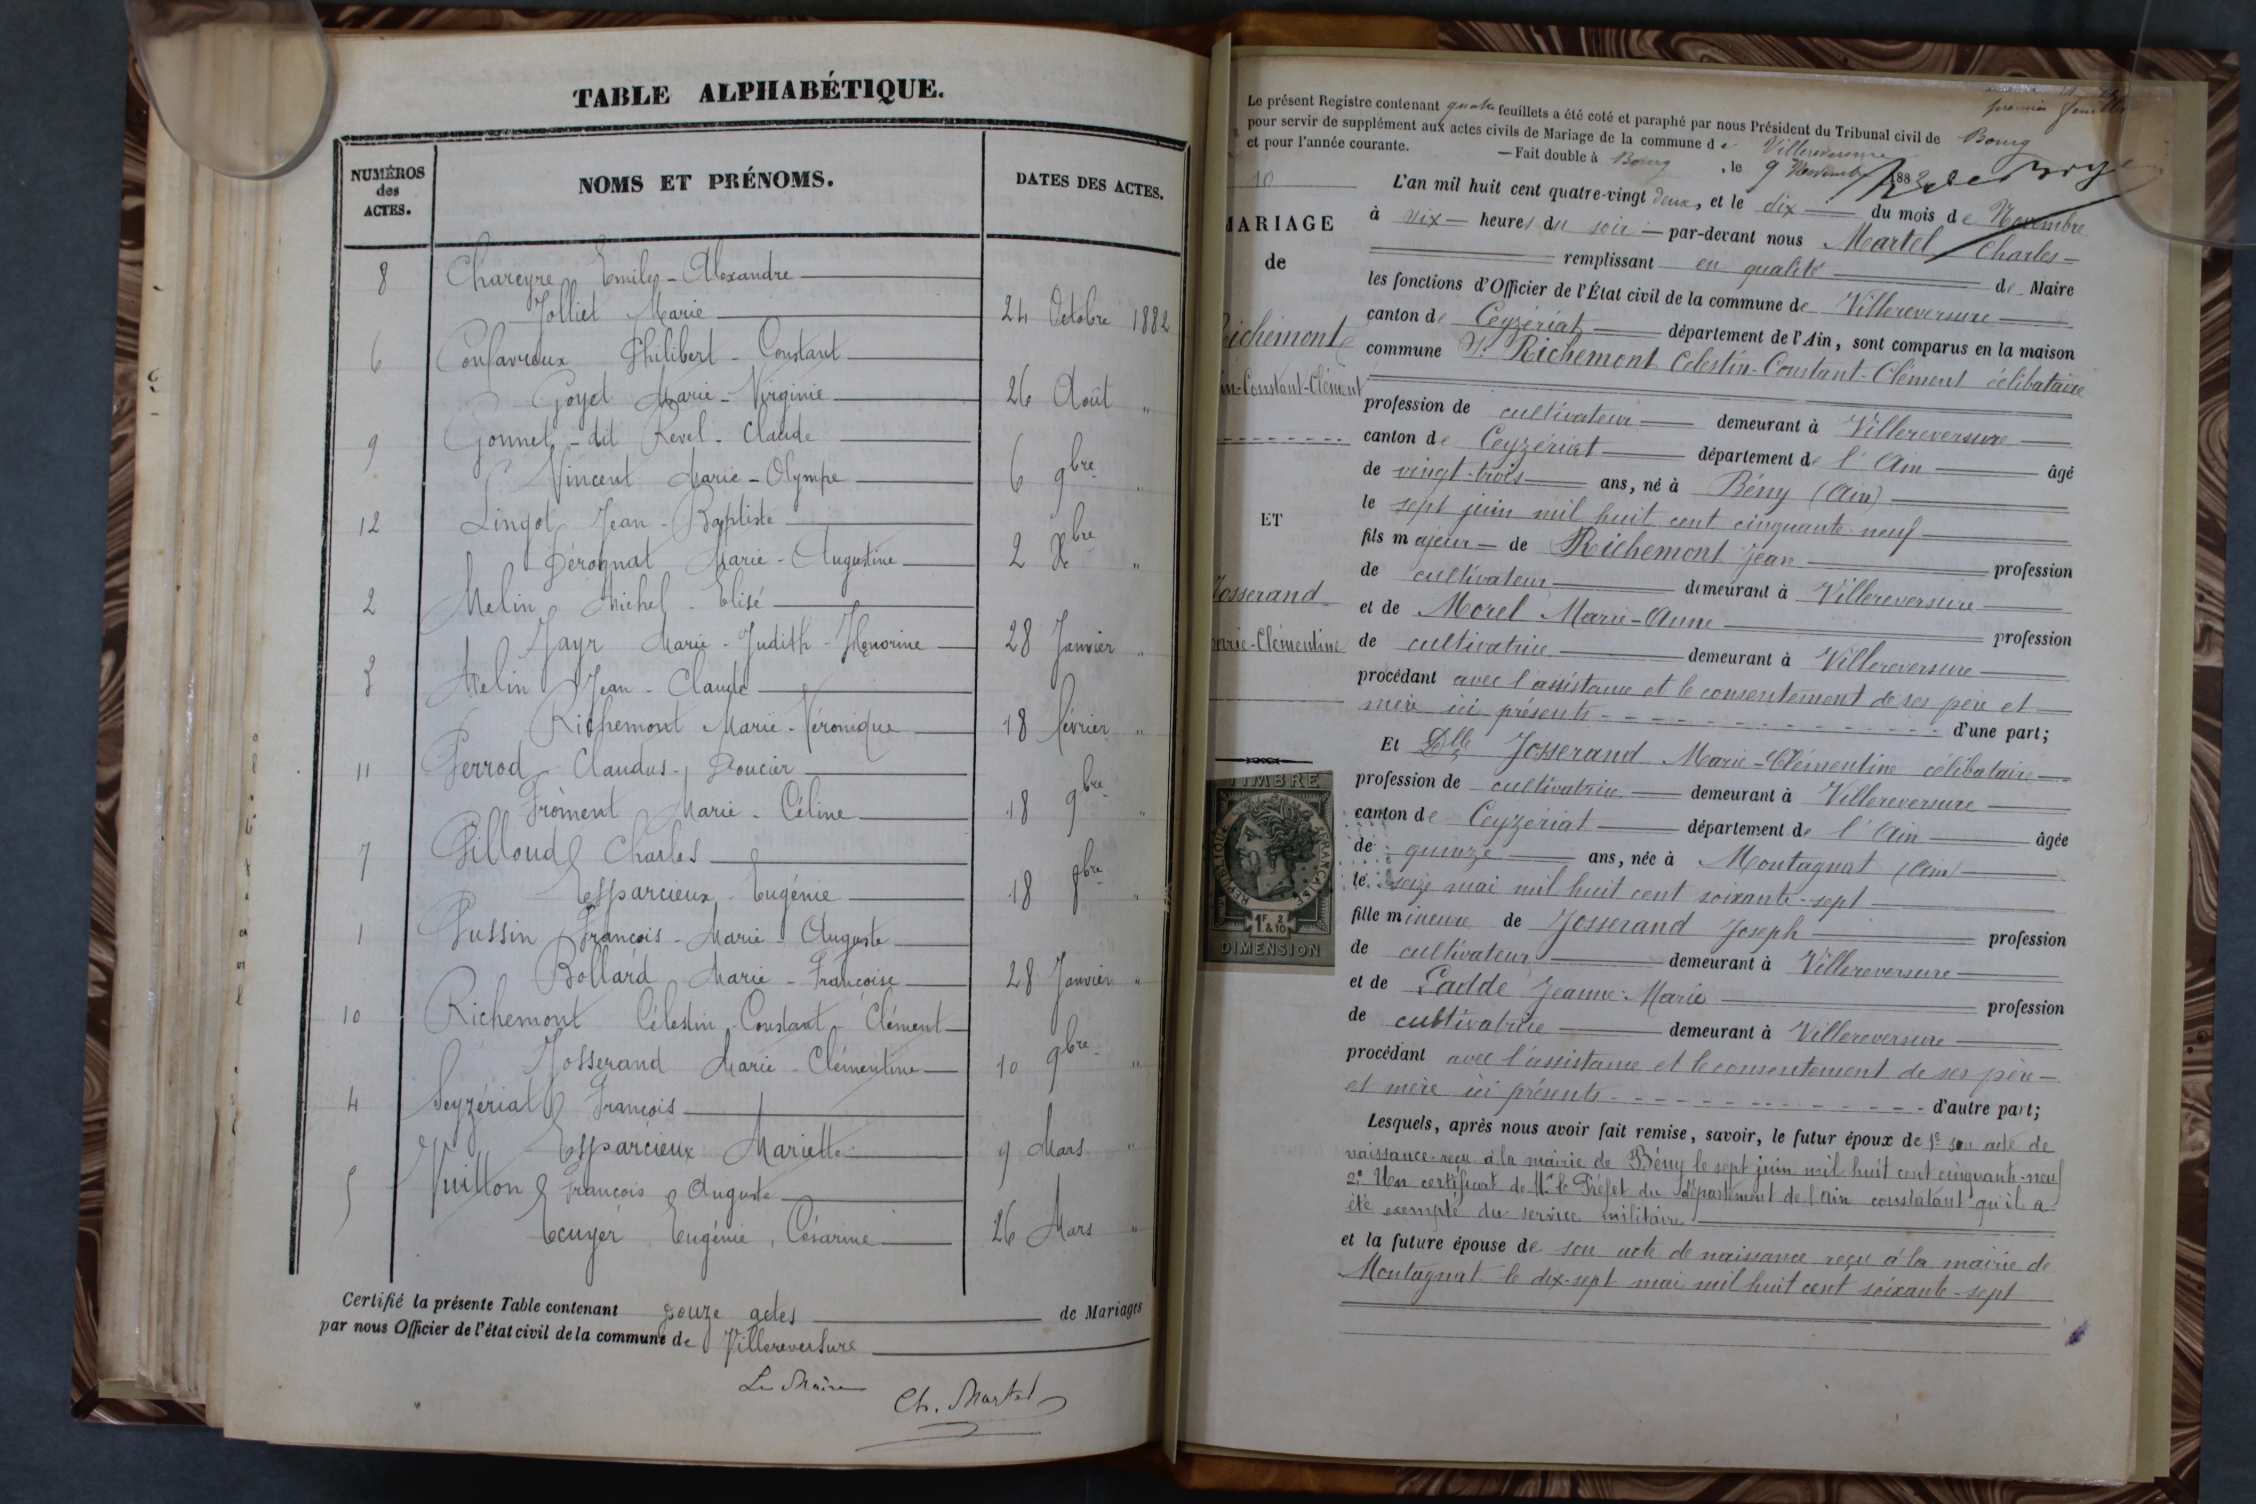 TABLE ALPHABÉTIQUE.
NUMÉROS
des
ACTES.
NOMS ET PRÉNOMS.
DATES DES ACTES.
8 Chareyre Emile - Alexandre
Jolliet Marie 24 Octobre 1882
6 Confavreux Philibert - Constant
Goyet Marie - Virginie 26 Août "
9 Gonnet - dit Revel - Claude
Vincent Marie - Olympe 6 9bre "
12 Lingot Jean - Baptiste
Dérognat Marie - Augustine 2 Xbre "
2 Melin Michel - Elisé
Jayr Marie - Judith - Honorine 28 Janvier "
3 Melin Jean - Claude
Richemont Marie - Véronique 18 février "
11 Perrod Claudus - Doucier
Froment Marie - Céline 18 9bre "
7 Pilloud Charles
Esparcieux - Eugénie 18 8bre "
1 Pussin François - Marie - Auguste
Bollard Marie - Françoise 28 Janvier "
10 Richemont Célestin - Constant - Clément
Josserand Marie - Clémentine 10 9bre "
4 Seyzériat François
Esparcieux Mariette 9 Mars "
5 Vuitton François Auguste
Ecuyer Eugénie, Césarine 26 Mars "
Certifié la présente Table contenant douze actes de Mariages
par nous Officier de l'état civil de la commune de Villereversure
Le Maire
Ch. Martel
premier feuillet
Le présent Registre contenant quatre feuillets a été coté et paraphé par nous Président du Tribunal civil de Bourg
pour servir de supplément aux actes civils de Mariage de la commune de Villereversure
et pour l'année courante. — Fait double à Bourg, le 9 Novembre 1882
10
MARIAGE
de
Richemont
in-Constant-Clément
ET
Josserand
Marie-Clémentine
TIMBRE
RÉPUBLIQUE FRANÇAISE
1F 2 & 10
DIMENSION
L'an mil huit cent quatre-vingt deux, et le dix du mois de Novembre
à six heures du soir par-devant nous Martel Charles
remplissant en qualité de Maire
les fonctions d'Officier de l'État civil de la commune de Villereversure
canton de Ceyzériat département de l'Ain, sont comparus en la maison
commune Sr. Richemont Célestin-Constant-Clément célibataire
profession de cultivateur demeurant à Villereversure
canton de Ceyzériat département de l'Ain âgé
de vingt-trois ans, né à Bény (Ain)
le sept juin mil huit cent cinquante neuf
fils majeur de Richemont Jean profession
de cultivateur demeurant à Villereversure
et de Morel Marie-Anne profession
de cultivatrice demeurant à Villereversure
procédant avec l'assistance et le consentement de ses père et
mère ici présents d'une part;
Et Dlle Josserand Marie-Clémentine célibataire
profession de cultivatrice demeurant à Villereversure
canton de Ceyzériat département de l'Ain âgée
de quinze ans, née à Montagnat (Ain)
le seize mai mil huit cent soixante-sept
fille mineure de Josserand Joseph profession
de cultivateur demeurant à Villereversure
et de Jeanne-Marie profession
de cultivatrice demeurant à Villereversure
procédant avec l'assistance et le consentement de ses père
et mère ici présents d'autre part;
Lesquels, après nous avoir fait remise, savoir, le futur époux de 1° son acte de
naissance reçu à la mairie de Bény le sept juin mil huit cent cinquante-neuf
2° Un certificat de Mr le Préfet du département de l'Ain constatant qu'il a
été exempté du service militaire
et la future épouse de son acte de naissance reçu à la mairie de
Montagnat le dix-sept mai mil huit cent soixante-sept